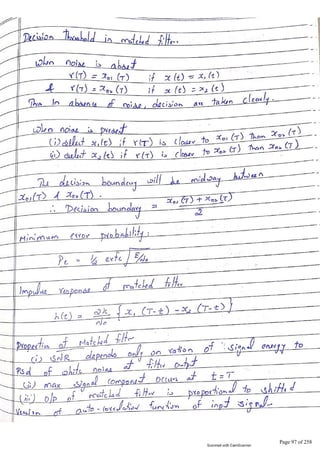 Decision Threshold in matched filter.
when noise is absent
r(T) = x₀₁(T) if x(t) = x₁(t)
& r(T) = x₀₂(T) if x(t) = x₂(t)
Thus In absence of noise, decision are taken clearly.
when noise is present
(i) select x₁(t) if r(T) is closer to x₀₁(T) than x₀₂(T)
ii) select x₂(t) if r(T) is closer to x₀₂(T) than x₀₁(T)
The decision boundary will be midway between
x₀₁(T) & x₀₂(T).
∴ Decision boundary = x₀₁(T) + x₀₂(T) / 2
Minimum error probability:
Pe = ½ erfc √E/N₀
Impulse response of matched filter
h(t) = 2k/N₀ { x₁(T-t) - x₂(T-t) }
Properties of Matched filter
(i) SNR depends only on ration of signal energy to
psd of white noise at filter output
(ii) max signal component occurs at t=T
(iii) o/p of matched filter is proportional to shifted
version of auto-correlation function of input signal.
Scanned with CamScanner
Page 97 of 258